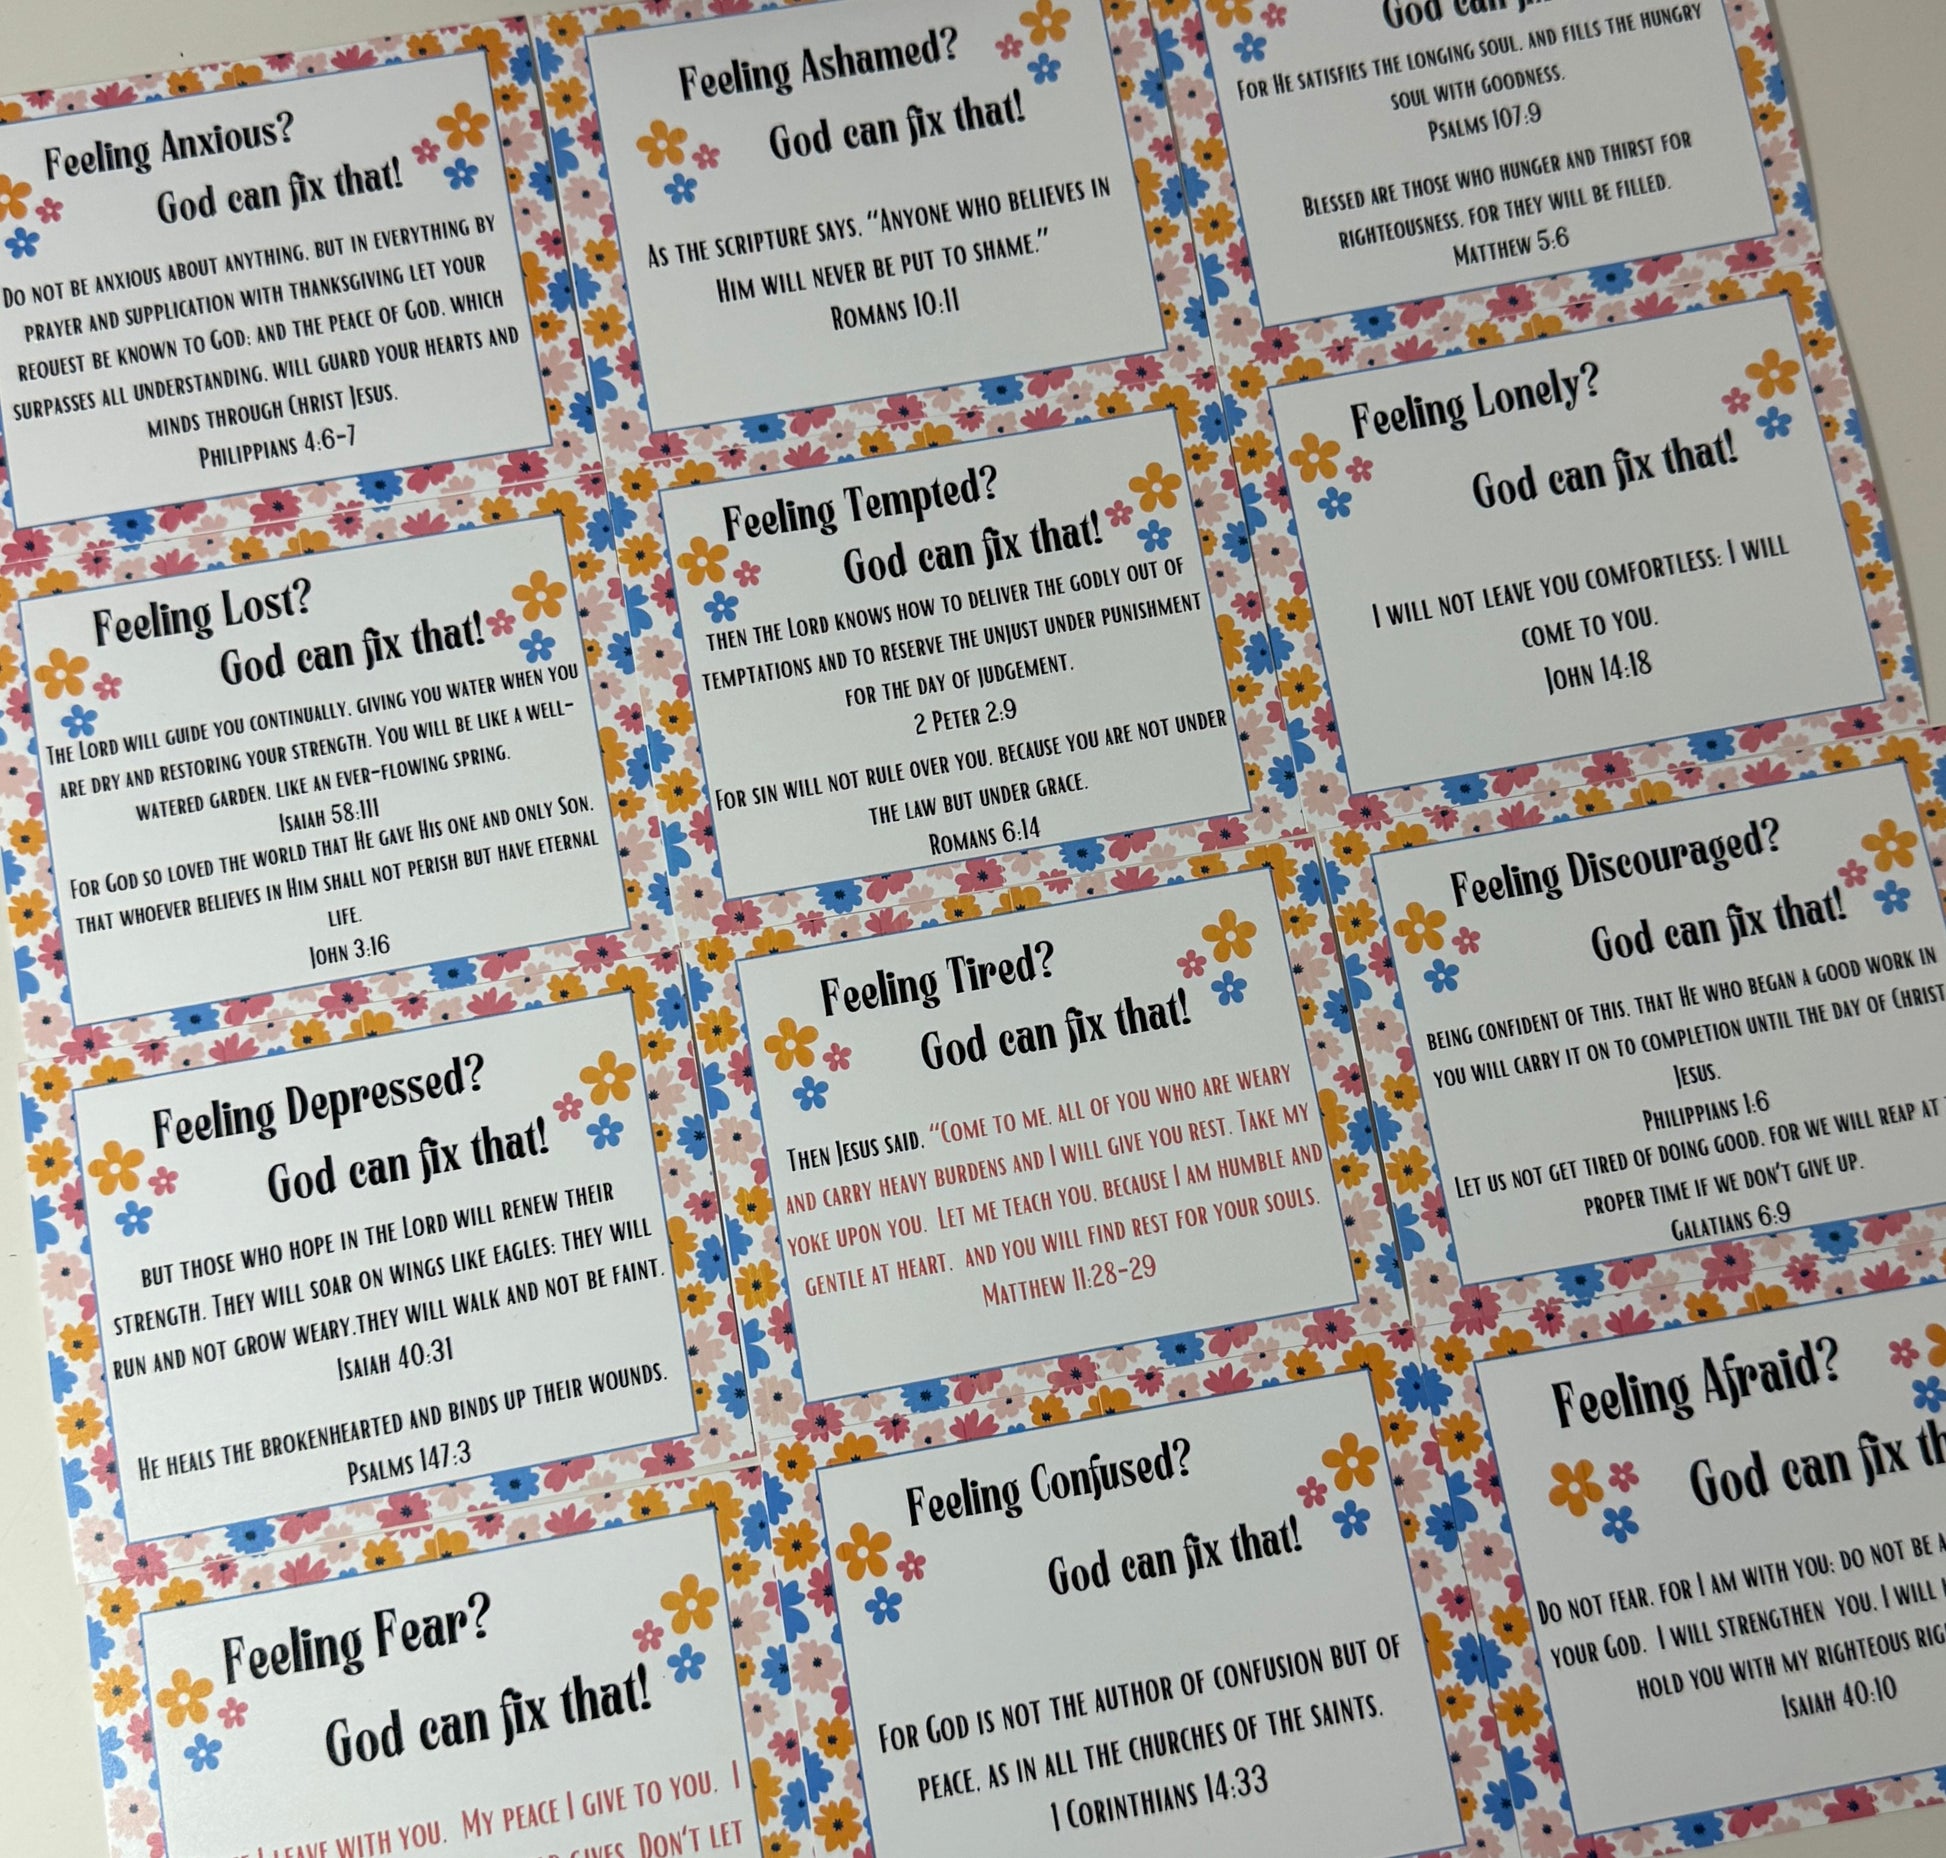 Feeling Anxious?
God can fix that!
Do not be anxious about anything, but in everything by
prayer and supplication with thanksgiving let your
request be known to God; and the peace of God, which
surpasses all understanding, will guard your hearts and
minds through Christ Jesus.
Philippians 4:6-7
Feeling Ashamed?
God can fix that!
As the scripture says, "Anyone who believes in
Him will never be put to shame."
Romans 10:11
God can
For He satisfies the longing soul, and fills the hungry
soul with goodness.
Psalms 107:9
Blessed are those who hunger and thirst for
righteousness, for they will be filled.
Matthew 5:6
Feeling Lost?
God can fix that!
The Lord will guide you continually, giving you water when you
are dry and restoring your strength. You will be like a well-
watered garden, like an ever-flowing spring.
Isaiah 58:111
For God so loved the world that He gave His one and only Son,
that whoever believes in Him shall not perish but have eternal
life.
John 3:16
Feeling Tempted?
God can fix that!
then the Lord knows how to deliver the godly out of
temptations and to reserve the unjust under punishment
for the day of judgement,
2 Peter 2:9
For sin will not rule over you, because you are not under
the law but under grace.
Romans 6:14
Feeling Lonely?
God can fix that!
I will not leave you comfortless: I will
come to you.
John 14:18
Feeling Depressed?
God can fix that!
but those who hope in the Lord will renew their
strength. They will soar on wings like eagles; they will
run and not grow weary,they will walk and not be faint.
Isaiah 40:31
He heals the brokenhearted and binds up their wounds.
Psalms 147:3
Feeling Tired?
God can fix that!
Then Jesus said, "Come to me, all of you who are weary
and carry heavy burdens and I will give you rest. Take my
yoke upon you. Let me teach you, because I am humble and
gentle at heart, and you will find rest for your souls.
Matthew 11:28-29
Feeling Discouraged?
God can fix that!
being confident of this, that He who began a good work in
you will carry it on to completion until the day of Christ
Jesus.
Philippians 1:6
Let us not get tired of doing good, for we will reap at
proper time if we don't give up.
Galatians 6:9
Feeling Fear?
God can fix that!
I leave with you. My peace I give to you. I
gives. Don't let
Feeling Confused?
God can fix that!
For God is not the author of confusion but of
peace, as in all the churches of the saints.
1 Corinthians 14:33
Feeling Afraid?
God can fix
Do not fear, for I am with you; do not be
your God. I will strengthen you, I will
hold you with my righteous
Isaiah 40:10